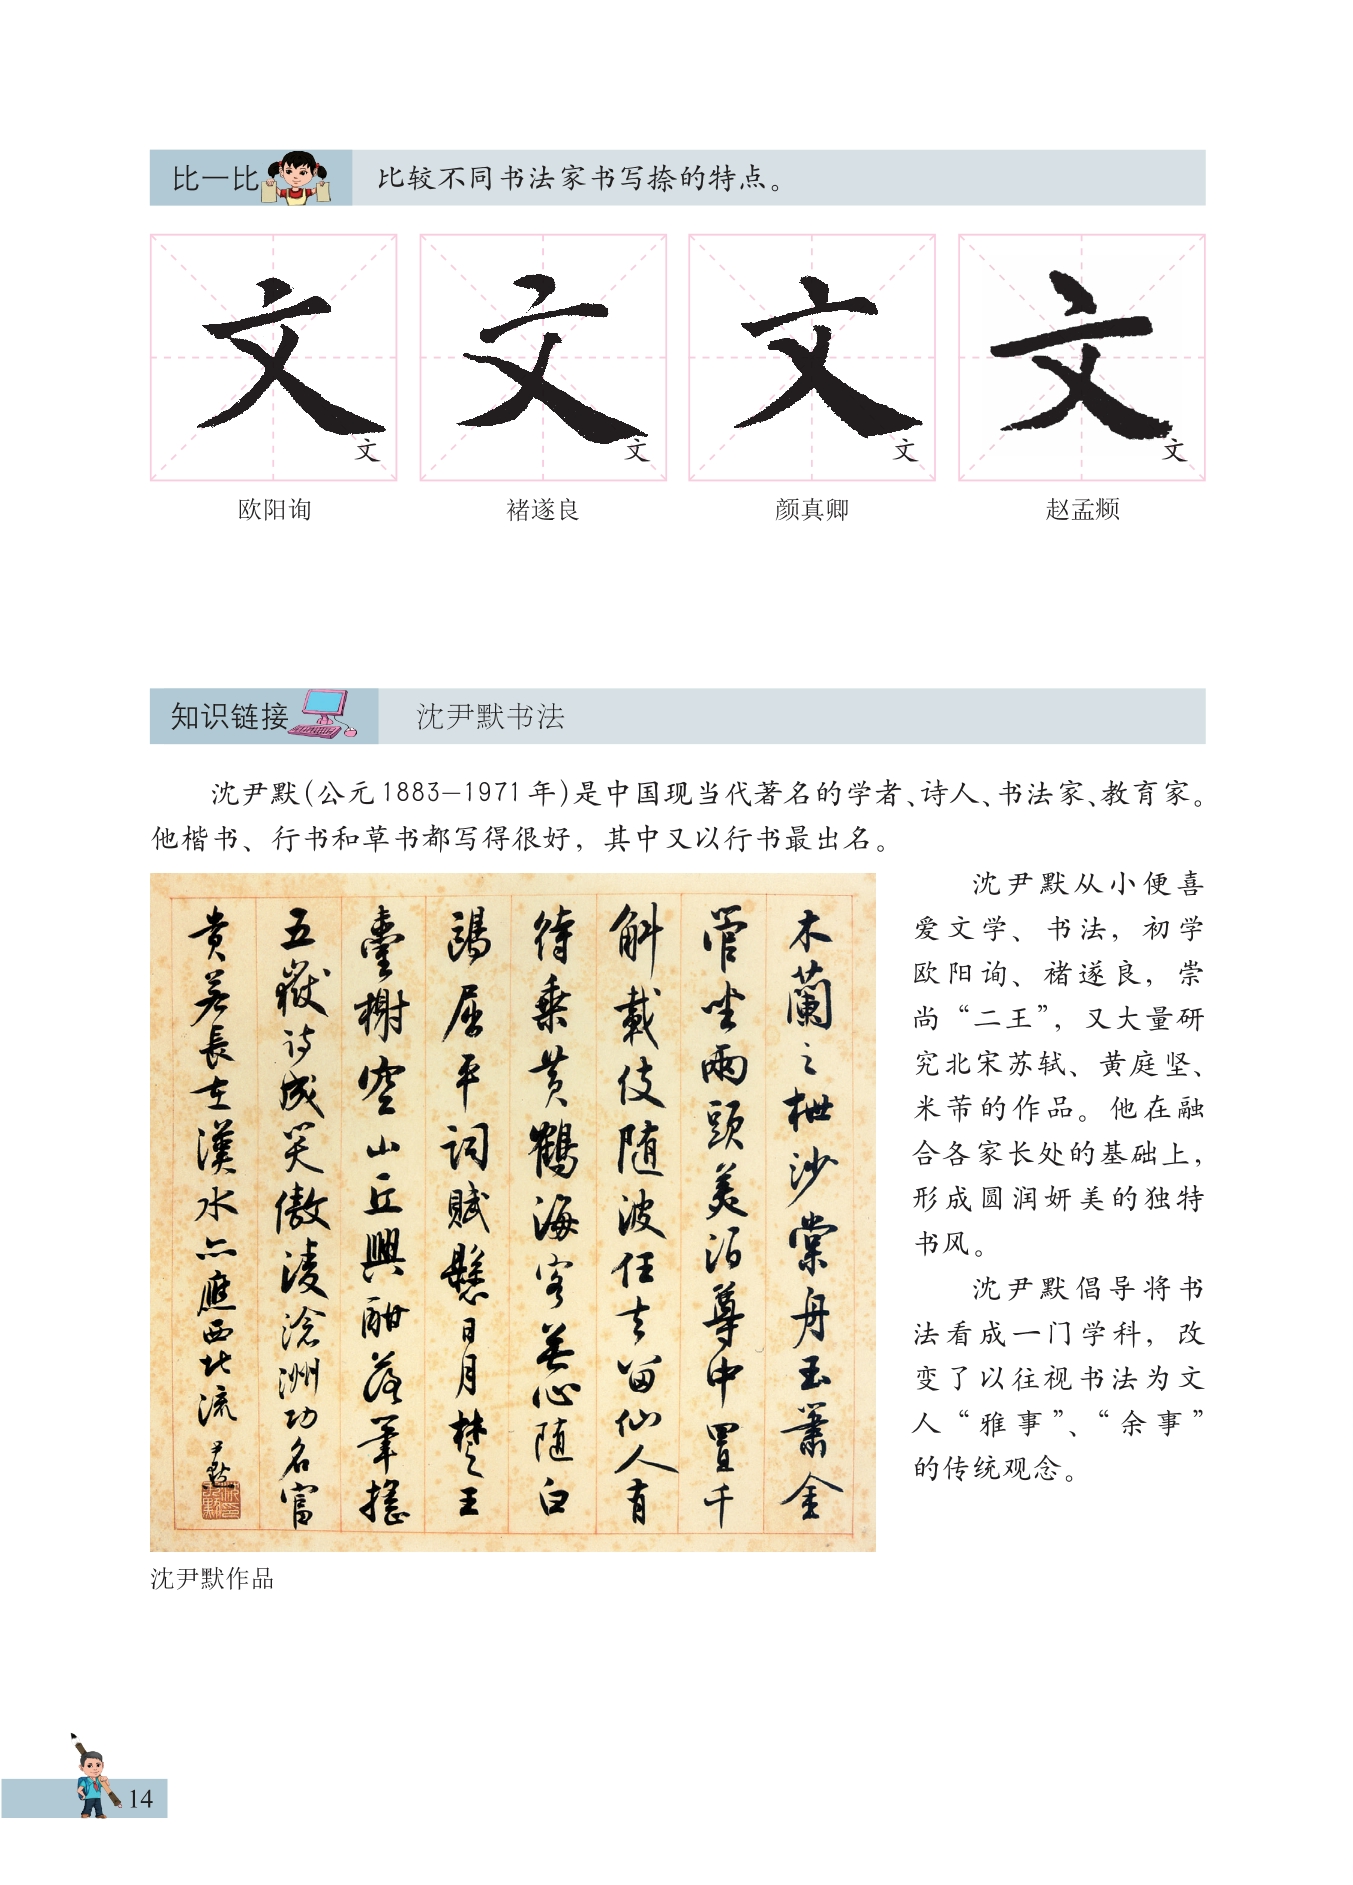 比一比
比较不同书法家书写捺的特点。
文 文 文 文
文 文 文 文
欧阳询 褚遂良 颜真卿 赵孟頫
知识链接
沈尹默书法
沈尹默(公元1883—1971年)是中国现当代著名的学者、诗人、书法家、教育家。
他楷书、行书和草书都写得很好，其中又以行书最出名。
木蘭之枻沙棠舟玉簫金
管坐兩頭美酒尊中置千
斛載伎随波任去留仙人有
待乘黄鶴海客無心随白
鷗屈平詞賦懸日月楚王
臺榭空山丘興酣落筆摇
五嶽诗成笑傲凌滄洲功名富
貴若長在漢水亦應西北流 尹默
沈尹默作品
沈尹默从小便喜
爱文学、书法，初学
欧阳询、褚遂良，崇
尚“二王”，又大量研
究北宋苏轼、黄庭坚、
米芾的作品。他在融
合各家长处的基础上，
形成圆润妍美的独特
书风。
沈尹默倡导将书
法看成一门学科，改
变了以往视书法为文
人“雅事”、“余事”
的传统观念。
14